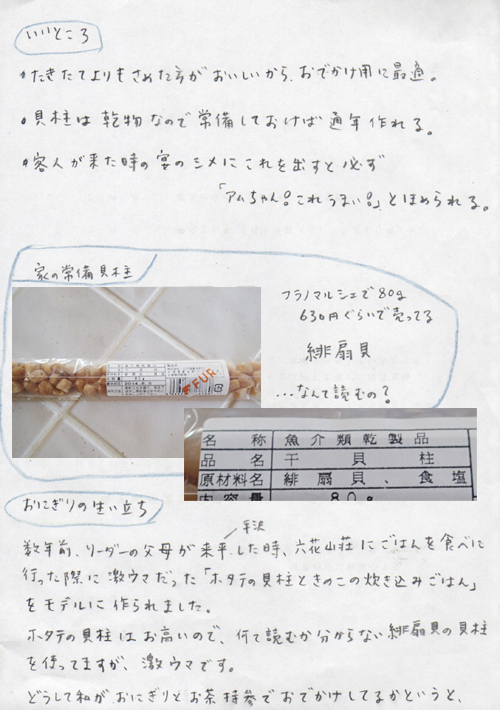 いいところ
・たきたてよりもさめた方がおいしいから、おでかけ用に最適。
・貝柱は乾物なので常備しておけば通年作れる。
・客人が来た時の宴のシメにこれを出すと必ず
「アムちゃん!これうまい!」とほめられる。
家の常備貝柱
フラノマルシェで80g
630円ぐらいで売ってる
緋扇貝
…なんて読むの?
FUR
名称 魚介類乾製品
品名 干貝柱
原材料名 緋扇貝、食塩
内容量 80g
おにぎりの生い立ち
平沢
数年前、リーダーの父母が来平した時、六花山荘にごはんを食べに
行った際に激ウマだった「ホタテの貝柱ときのこの炊き込みごはん」
をモデルに作られました。
ホタテの貝柱はお高いので、何て読むか分からない緋扇貝の貝柱
を使ってますが、激ウマです。
どうして私がおにぎりとお茶持参でおでかけしてるかというと、